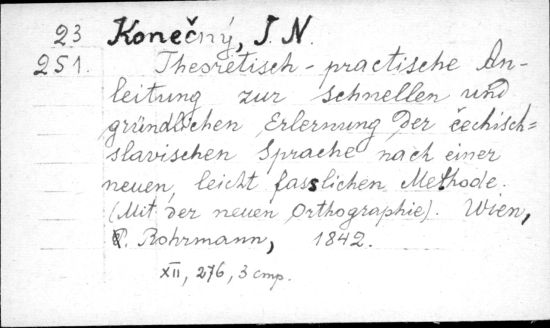 23 Konečný, J. N.
251. Theoretisch-practische An-
leitung zur schnellen und
gründlichen Erlernung der čechisch=
slavischen Sprache nach einer
neuen, leicht fasslichen Methode.
(Mit der neuen Orthographie). Wien,
P. Rohrmann, 1842.
XII, 276, 3 стр.